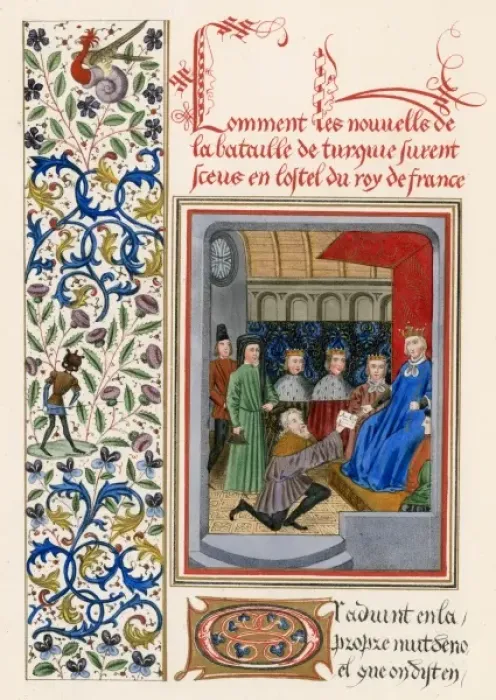 Comment les nouuells de
la bataille de turquie furent
sceus en lostel du roy de france
Or aduint en la /
propre nuit de no
el que on dist en /